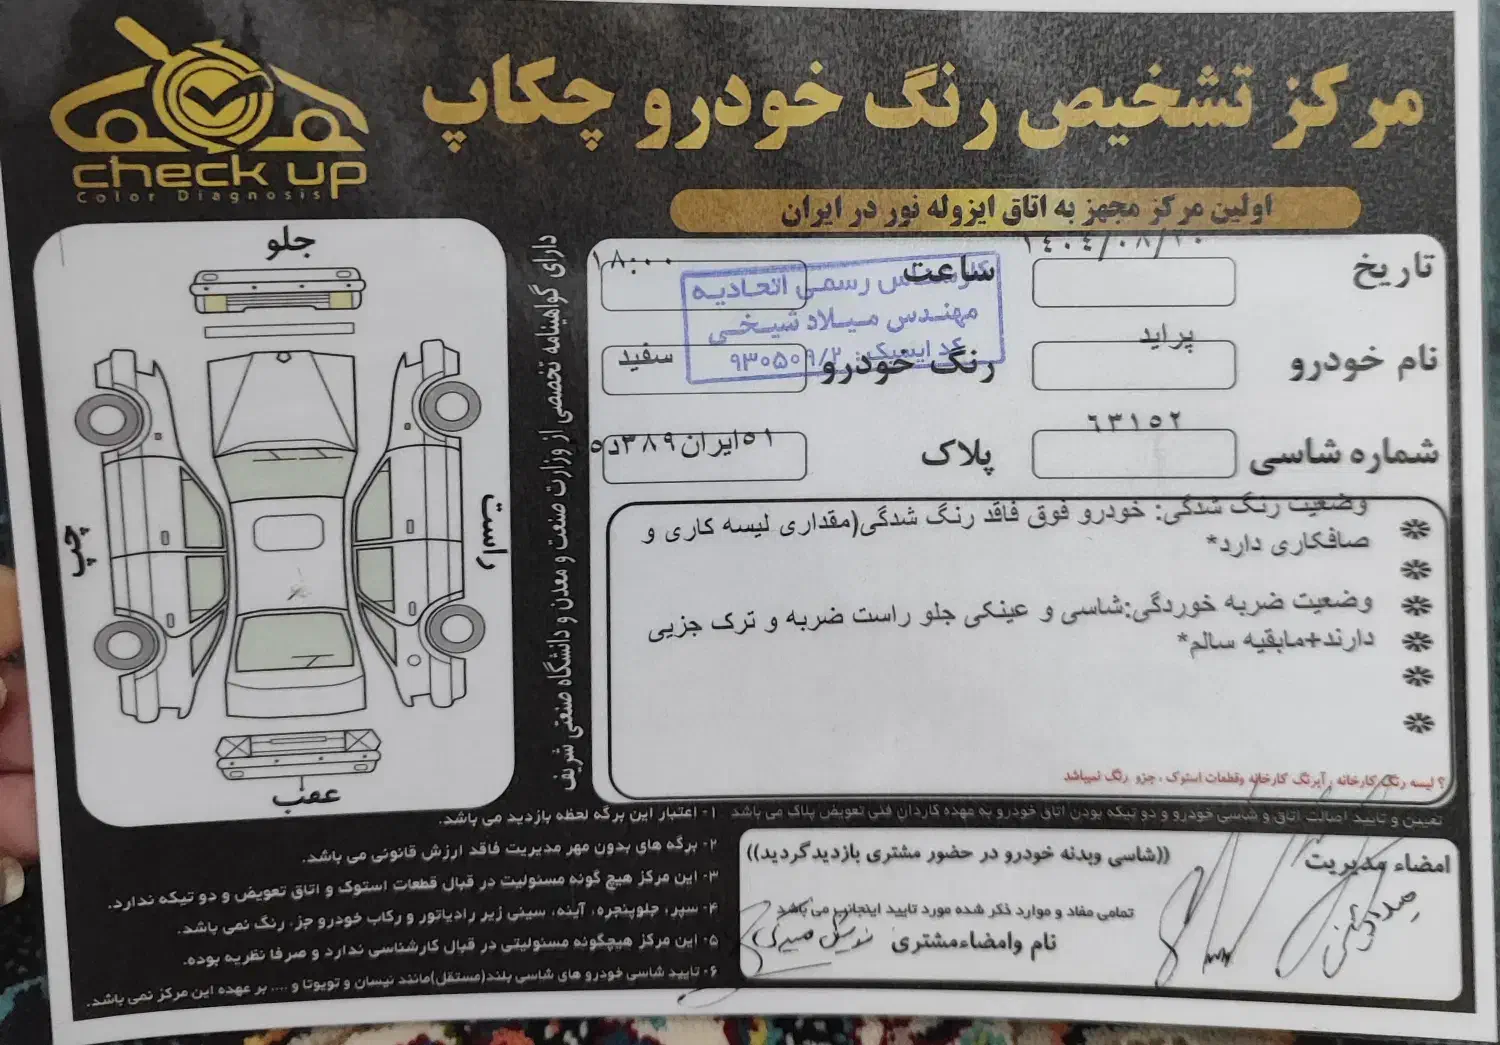 مرکز تشخیص رنگ خودرو چکاپ
check up
Color Diagnosis
اولین مرکز مجهز به اتاق ایزوله نور در ایران
دارای گواهینامه تخصصی از وزارت صنعت و معدن و دانشگاه صنعتی شریف
تاریخ ۱۴۰۴/۰۸/۲۰ ساعت ۱۸:۰۰
رسمی اتحادیه
مهندس میلاد شیخی
کد ایسیک: ۹۳۰۵۰۹/۲
نام خودرو پراید رنگ خودرو سفید
شماره شاسی ۶۳۱۵۲ پلاک ۵۱ایران۳۸۹د۵
وضعیت رنگ شدگی: خودرو فوق فاقد رنگ شدگی(مقداری لیسه کاری و
صافکاری دارد*
وضعیت ضربه خوردگی:شاسی و عینکی جلو راست ضربه و ترک جزیی
دارند+مابقیه سالم*
؟ لیسه رنگ کارخانه , آبرنگ کارخانه وقطعات استوک ، جزو رنگ نمیباشد
تعیین و تایید اصالت اتاق و شاسی خودرو و دو تیکه بودن اتاق خودرو به عهده کاردان فنی تعویض پلاک می باشد
جلو
چپ
راست
عقب
۱- اعتبار این برگه لحظه بازدید می باشد.
۲- برگه های بدون مهر مدیریت فاقد ارزش قانونی می باشد.
۳- این مرکز هیچ گونه مسئولیت در قبال قطعات استوک و اتاق تعویض و دو تیکه ندارد.
۴- سپر، جلوپنجره، آینه، سینی زیر رادیاتور و رکاب خودرو جز، رنگ نمی باشد.
۵- این مرکز هیچگونه مسئولیتی در قبال کارشناسی ندارد و صرفا نظریه بوده.
۶- تایید شاسی خودرو های شاسی بلند(مستقل)مانند نیسان و تویوتا و .... بر عهده این مرکز نمی باشد.
امضاء مدیریت
((شاسی وبدنه خودرو در حضور مشتری بازدیدگردید))
تمامی مفاد و موارد ذکر شده مورد تایید اینجانب می باشد
نام وامضاءمشتری